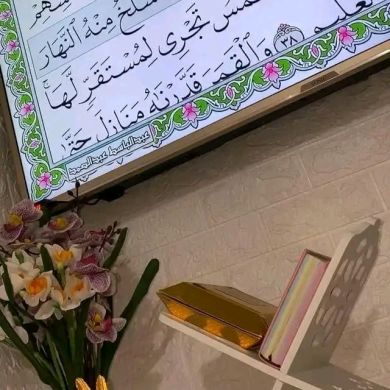 نَسْلَخُ مِنْهُ ٱلنَّهَارَ
تَجْرِى لِمُسْتَقَرٍّ لَّهَا
ٱلْعَلِيمِ ٣٨ وَٱلْقَمَرَ قَدَّرْنَٰهُ مَنَازِلَ حَتَّىٰ
عبدالباسط عبدالصمد